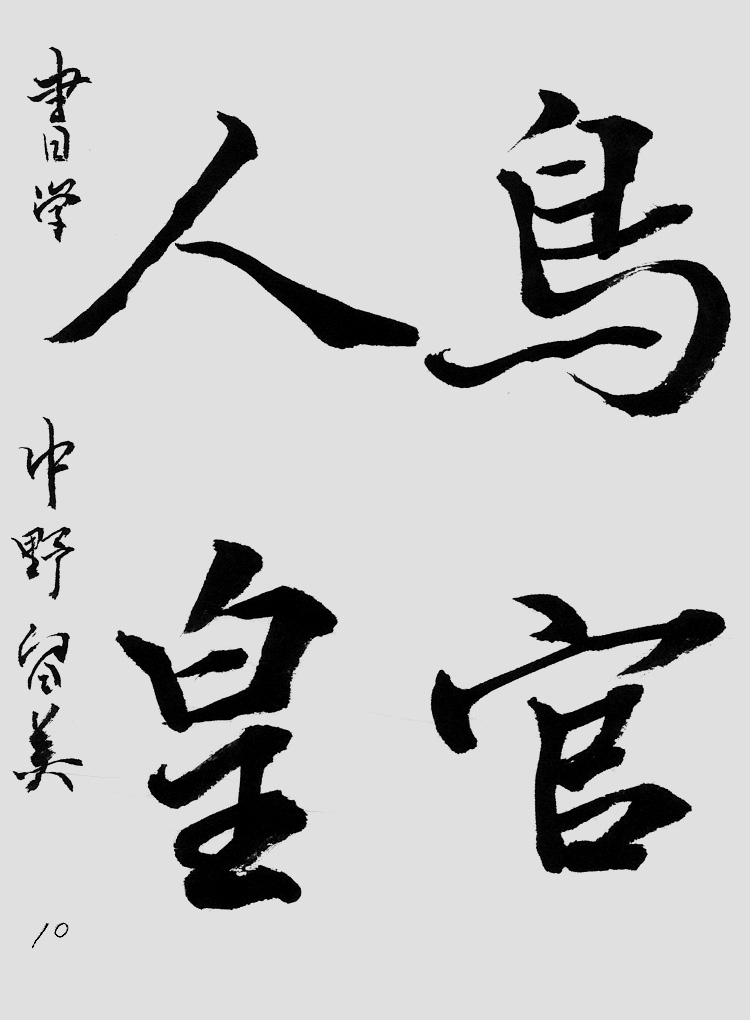 鳥官
人皇
書学 中野留美
10